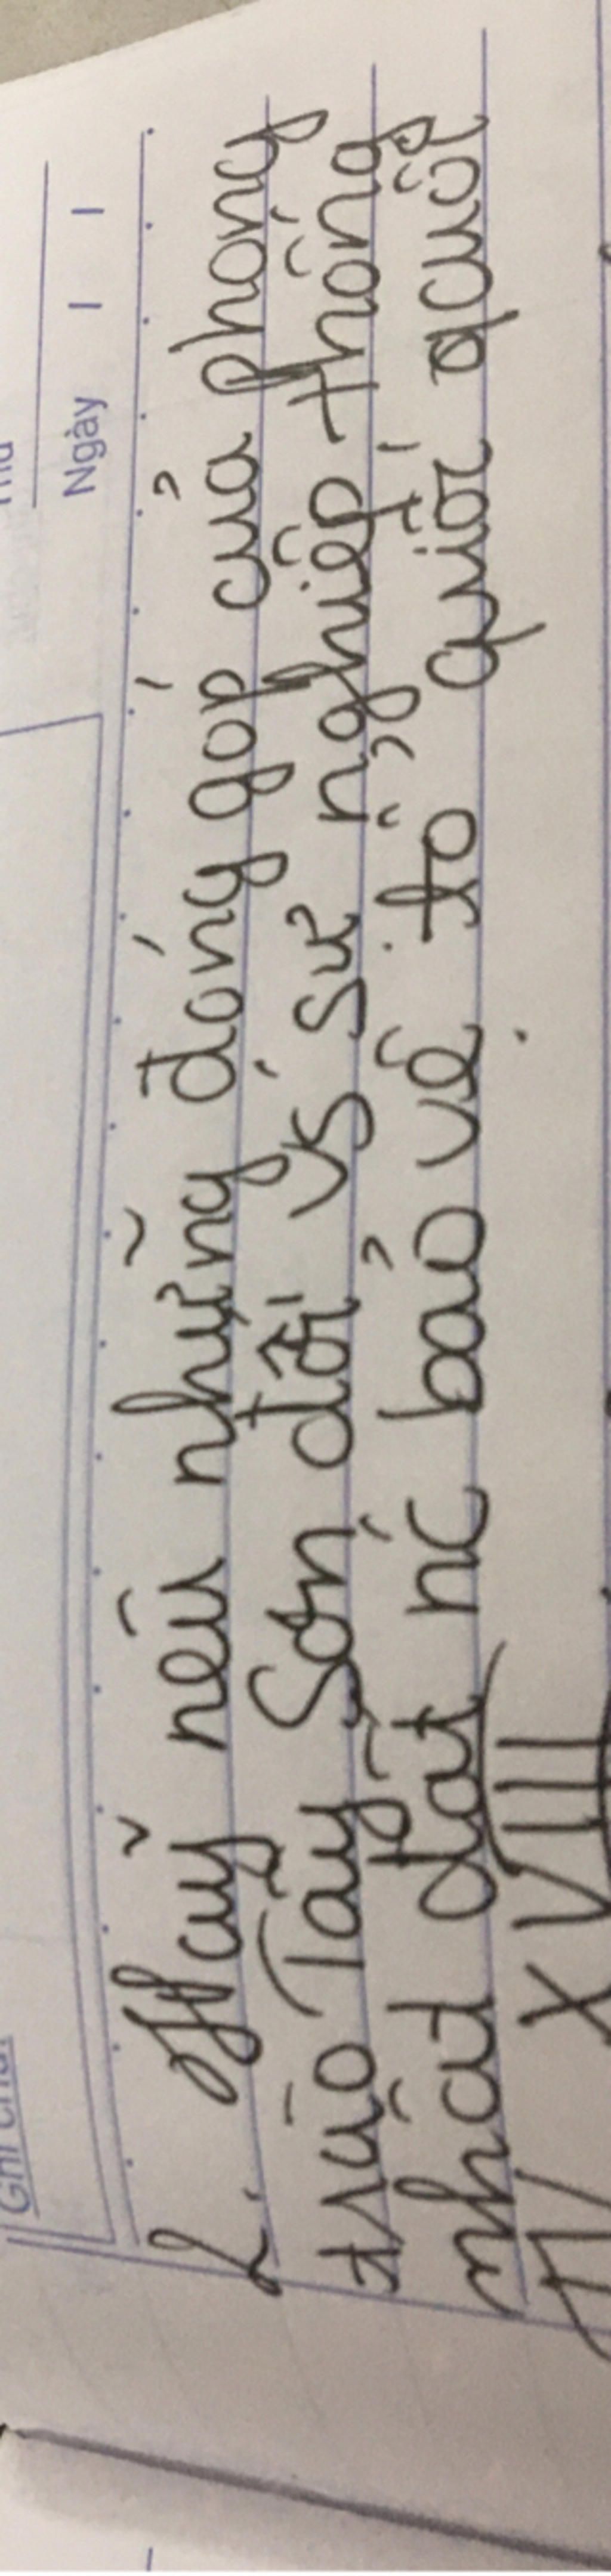 Ghi chú:
Ngày / /
2. Hãy nêu những đóng góp của phong
trào Tây Sơn đối vs sự nghiệp thống
nhất đất nc bảo vệ tổ quốc cuối
TK XVIII